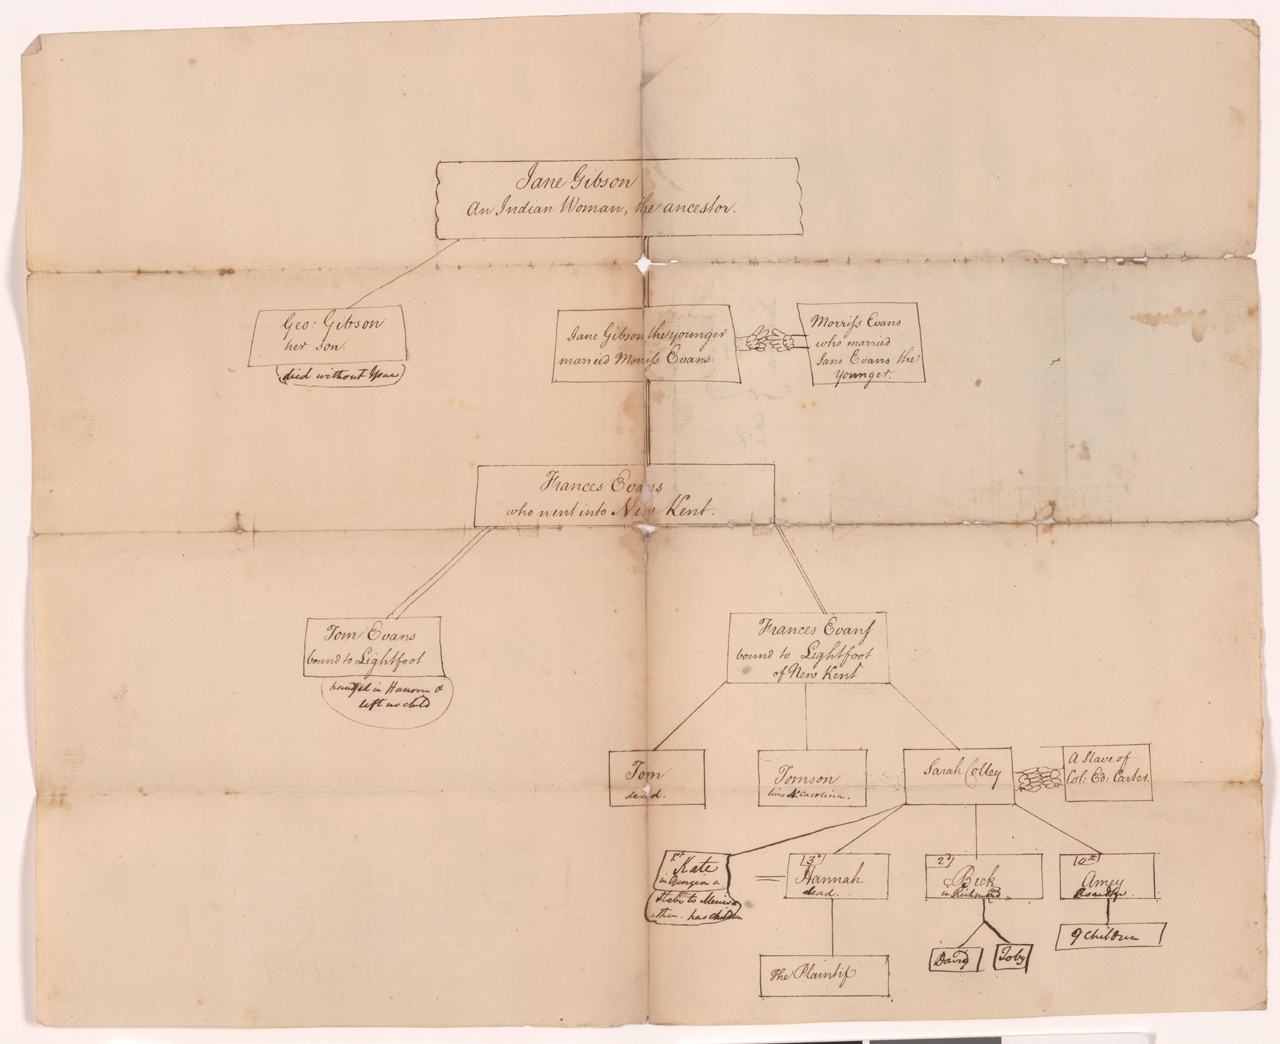 Jane Gibson
An Indian Woman, the ancestor.
Geo: Gibson
her son.
died without Issue
Jane Gibson the younger
married Morriss Evans
Morriss Evans
who married
Jane Evans the
Younger.
Frances Evans
who went into New Kent.
Tom Evans
bound to Lightfoot
hanged in Hanover &
left no child
Frances Evans
bound to Lightfoot
of New Kent
Tom
dead.
Tomson
lives N. Carolina.
Sarah Colley
A Slave of
Col: Ed: Carter.
1st
Kate
in Georgia a
Slave to
has children
3d
Hannah
dead.
2d
Beck
in Richmond.
4th
Amey
The Plaintif
David
Toby
9 Children